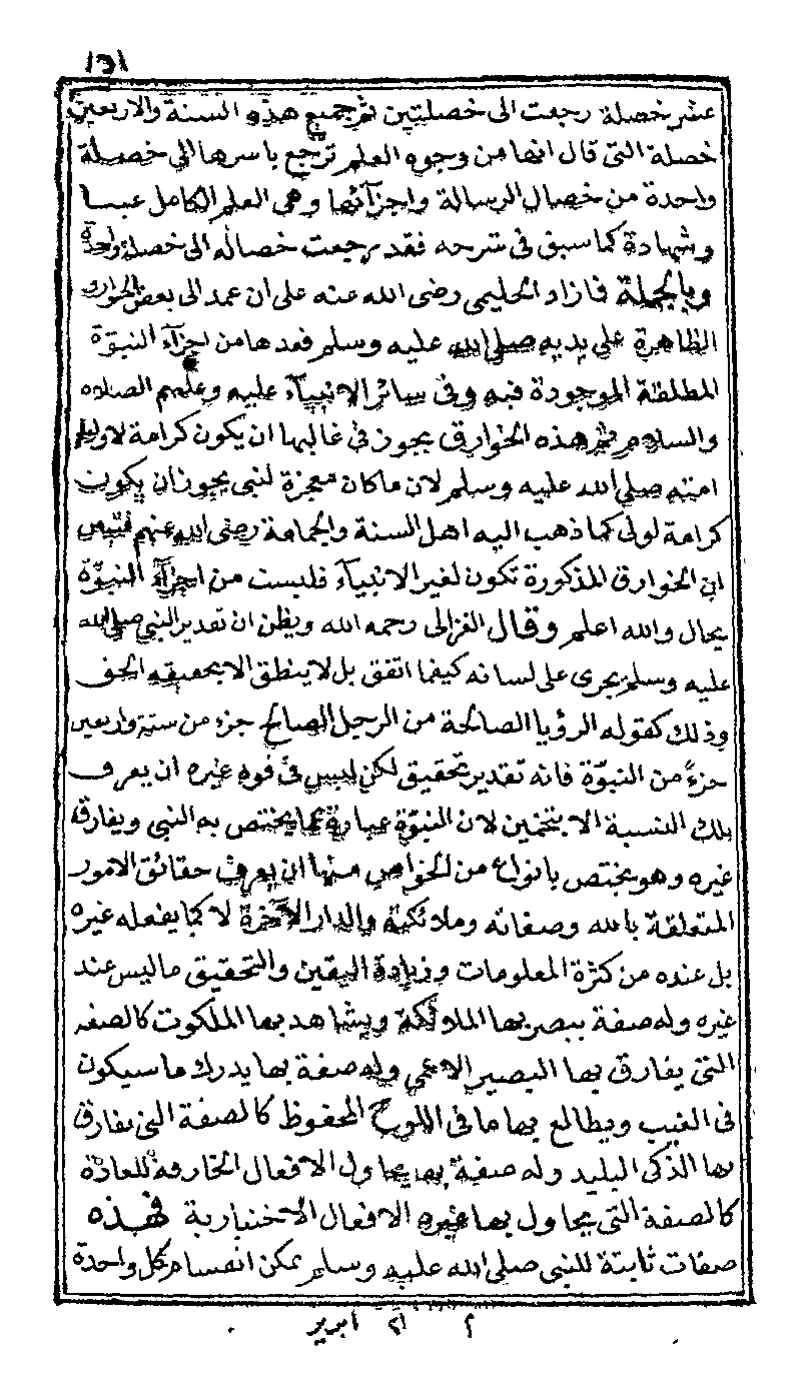 ١٥١
عشر خصلة رجعت الى خصلتين ثم جميع هذه الستة والاربعين
خصلة التى قال انها من وجوه العلم ترجع باسرها الى خصلة
واحدة من خصال الرسالة واجزآئها وهى العلم الكامل غيبا
وشهادة كما سبق فى شرحه فقد رجعت خصاله الى خصلة واحدة
وبالجملة فازاد الحليمى رضى الله عنه على ان عمد الى بعض الخوارق
الظاهرة على يديه صلى الله عليه وسلم فعدها من اجزآء النبوّة
المطلقة الموجودة فيه وفى سائر الانبيآء عليه وعليهم الصلاه
والسلام ثم هذه الخوارق يجوز فى غالبها ان يكون كرامة لاوليآء
امته صلى الله عليه وسلم لان ماكان معجزة لنبى يجوز ان يكون
كرامة لولى كما ذهب اليه اهل السنة والجماعة رضى الله عنهم فتبين
ان الخوارق المذكورة تكون لغير الانبيآء فليست من اجزآء النبوّة
بحال والله اعلم وقال الغزالى رحمه الله ويظن ان تقدير النبى صلى الله
عليه وسلم يجرى على لسانه كيفما اتفق بل لا ينطق الا بحقيقه الحق
وذلك كقوله الرؤيا الصالحة من الرجل الصالح جزء من ستة واربعين
جزءً من النبوّة فانه تقدير تحقيق لكن ليس فى قوه غيره ان يعرف
تلك النسبة الا بتخمين لان النبوّة عبارة عما يختص به النبى ويفارق
غيره وهو يختص بانواع من الخواص منها ان يعرف حقائق الامور
المتعلقة بالله وصفاته وملائكته والدار الآخرة لا كما يفعله غيره
بل عنده من كثرة المعلومات وزيادة اليقين والتحقيق ما ليس عند
غيره وله صفة يبصر بها الملائكة ويشاهد بها الملكوت كالصفه
التى يفارق بها البصير الاعمى وله صفة بها يدرك ما سيكون
فى الغيب ويطالع بها ما فى اللوح المحفوظ كالصفة التى يفارق
بها الذكى البليد وله صفة بها يحاول الافعال الخارقة للعادة
كالصفة التى يحاول بها غيره الافعال الاختيارية فهذه
صفات ثابتة للنبى صلى الله عليه وسلم يمكن انقسام كل واحدة
٢ ٢١ ابريز